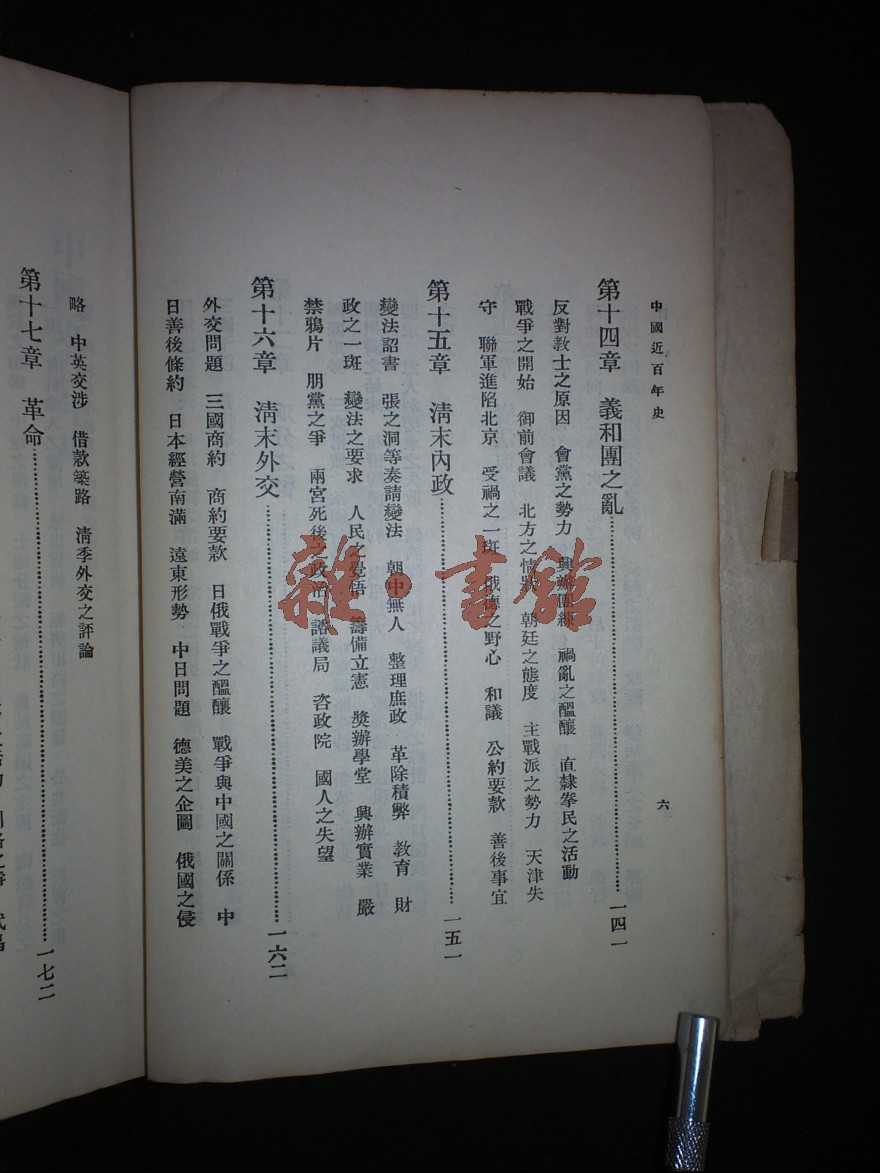 中國近百年史
六
第十四章　義和團之亂………一四一
反對教士之原因　會黨之勢力　興辦團練　禍亂之醞釀　直隸拳民之活動
戰爭之開始　御前會議　北方之情狀　朝廷之態度　主戰派之勢力　天津失
守　聯軍進陷北京　受禍之一斑　俄德之野心　和議　公約要款　善後事宜
第十五章　淸末內政………一五一
變法詔書　張之洞等奏請變法　朝中無人　整理庶政　革除積弊　教育　財
政之一斑　變法之要求　人民之覺悟　籌備立憲　獎辦學堂　興辦實業　嚴
禁鴉片　朋黨之爭　兩宮死後之政治　諮議局　咨政院　國人之失望
第十六章　淸末外交………一六二
外交問題　三國商約　商約要款　日俄戰爭之醞釀　戰爭與中國之關係　中
日善後條約　日本經營南滿　遠東形勢　中日問題　德美之企圖　俄國之侵
略　中英交涉　借款築路　淸季外交之評論
第十七章　革命………一七二
雜·書館